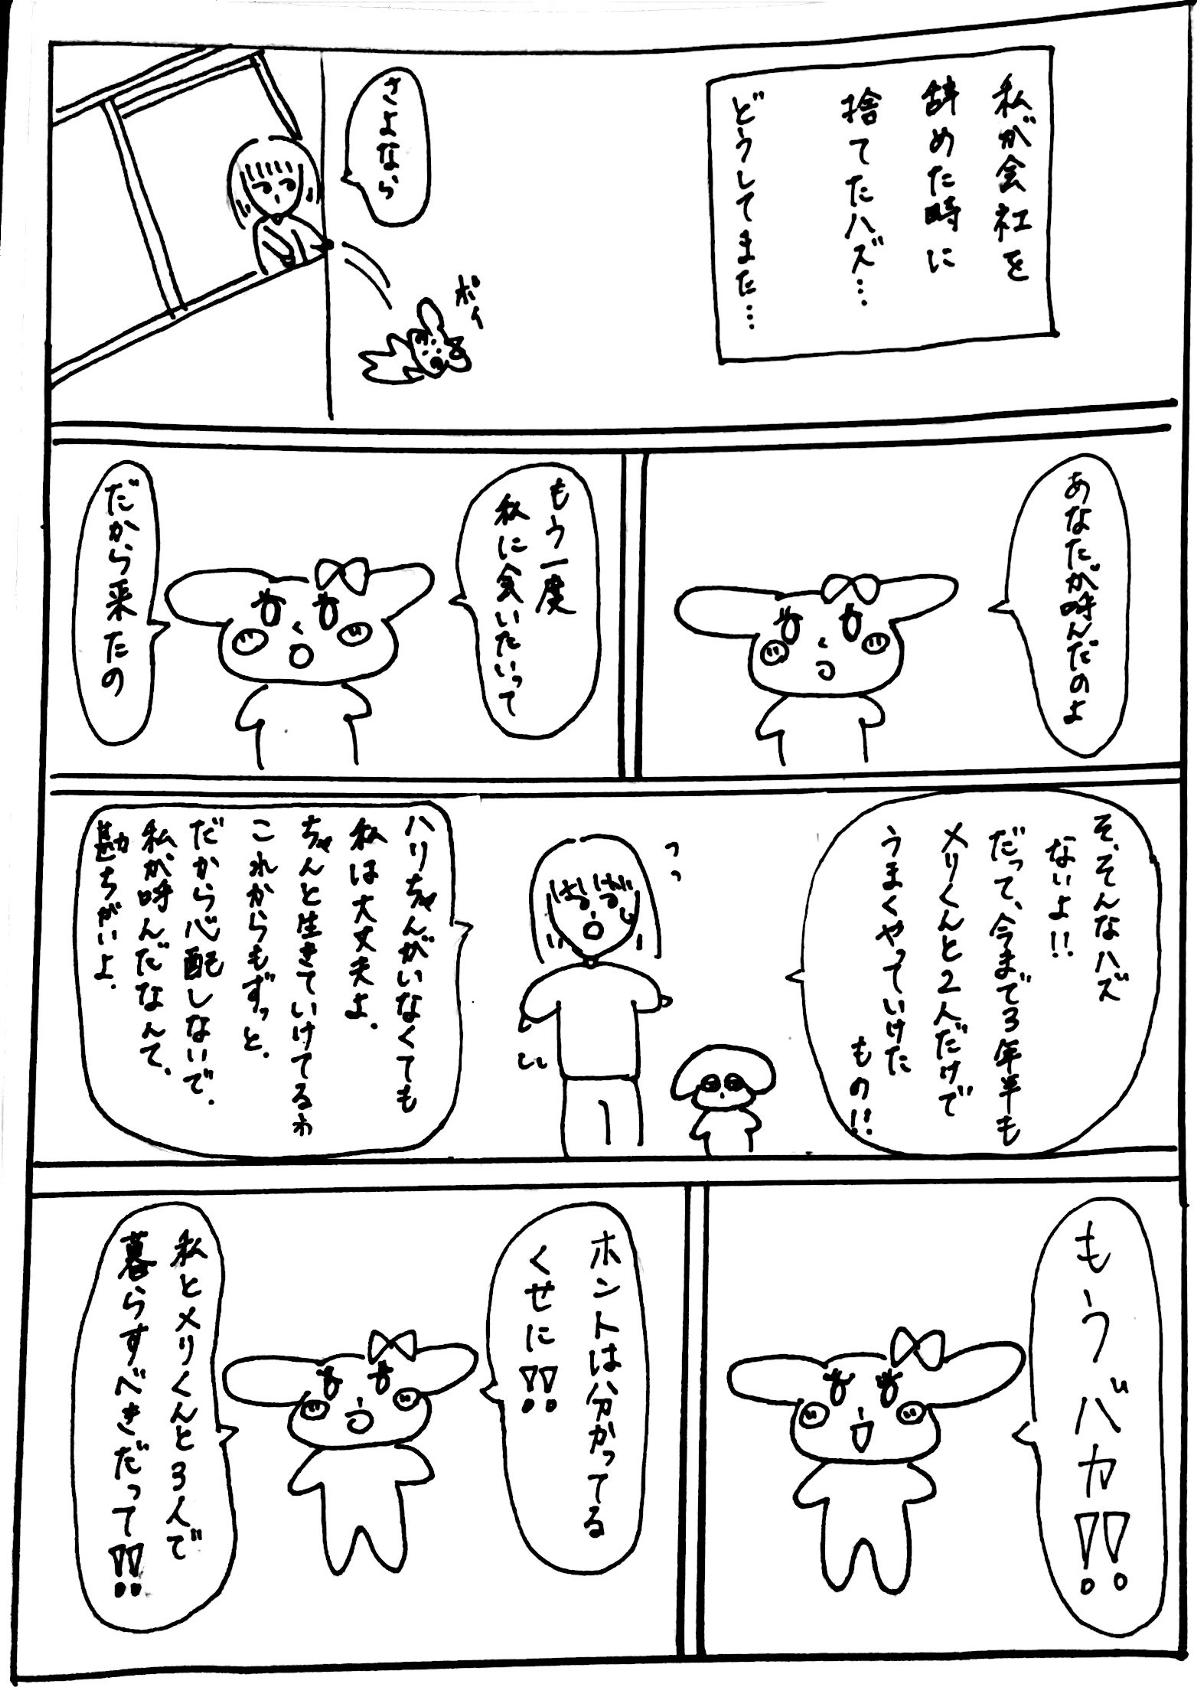 私が会社を
辞めた時に
捨てたハズ…
どうしてまた…
さよなら
ポイ
あなたが呼んだのよ
もう一度
私に会いたいって
だから来たの
そ、そんなハズ
ないよ!!
だって、今まで3年半も
メリくんと2人だけで
うまくやっていけた
もの!!
ハリちゃんがいなくても
私は大丈夫よ.
ちゃんと生きていけてるわ
これからもずっと.
だから心配しないで.
私が呼んだなんて、
勘ちがいよ.
もうバカ!!
ホントは分かってる
くせに!!
私とメリくんと3人で
暮らすべきだって!!